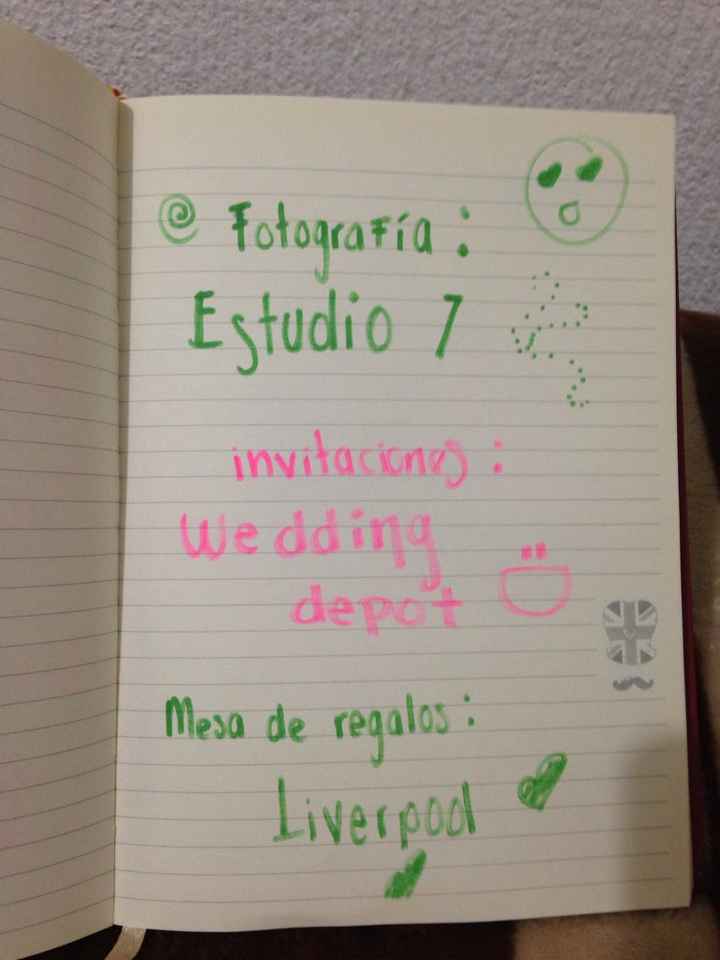 Fotografía :
Estudio 7
invitaciones :
Wedding
depot
Mesa de regalos :
Liverpool